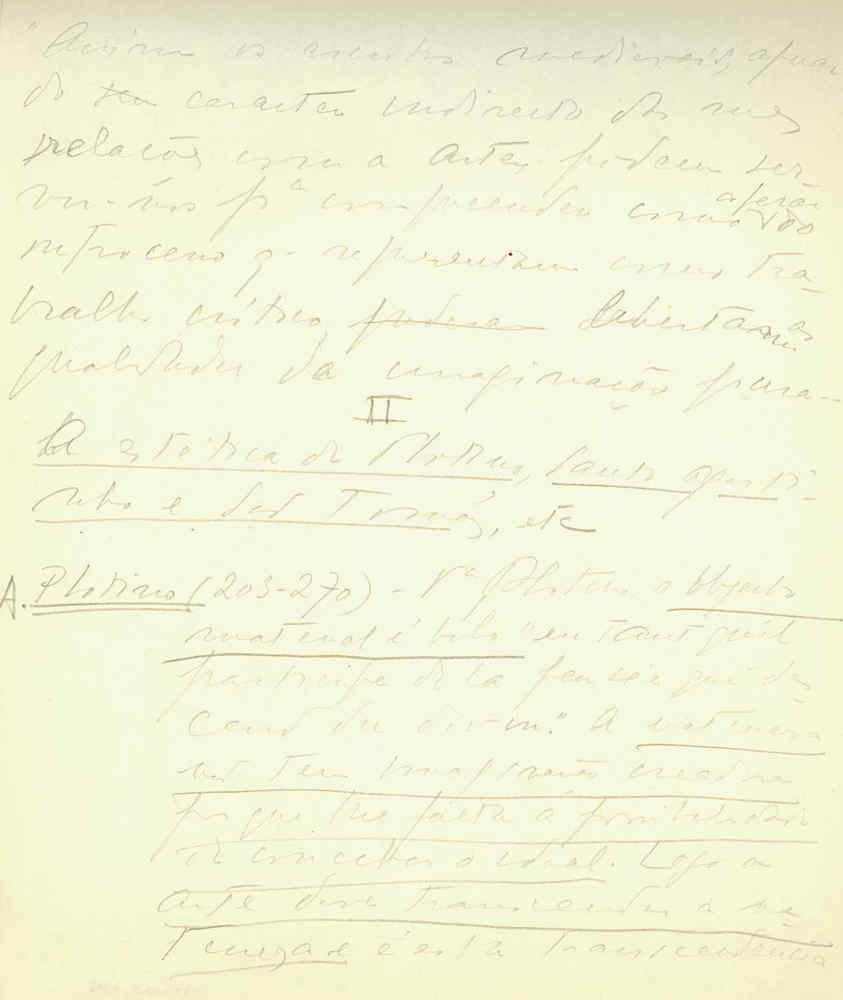 "Assim os escritos medievais, apesar
do seu caracter indirecto das suas
relações com a Arte, podem ser-
vir-nos pª compreender como
retrocesso q. representam como tra-
balho crítico, poderam libertaram as
qualidades da imaginação para-
II
A estética de Plotino, Santo Agosti-
nho e São Tomás, etc
A. Plotino (203-270) - Pª Plotino o objecto
material é belo "en tant qu'il
participe de la pensée qui des
cend du divin." A natureza
não tem imaginação creadora
porque lhe falta a possibilidade
de conceber o ideal. Logo a
Arte deve transcender a na-
tureza e é esta transcendência